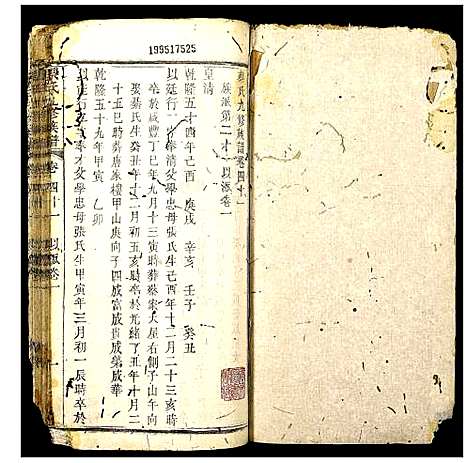 199517525
氏九修族譜卷四十一
族派第二十一以派卷一
皇清
乾隆五十四年己酉 庚戌 辛亥 壬子 癸丑
以廷行一 字奉清父學忠母張氏生己酉年十二月二十三亥時
卒於咸豐丁巳年九月十三寅時葬蔡家大屋右側子山午向
娶綦氏生癸丑年十二月初五亥時卒於光緒丁丑年十月二
十五巳時葬唐家樓甲山庚向子四咸富咸貴咸榮咸華
乾隆五十九年甲寅 乙卯
行 字 才父學忠母張氏生甲寅年三月初一辰時卒於
氏九修族譜 卷四十一 以派卷一